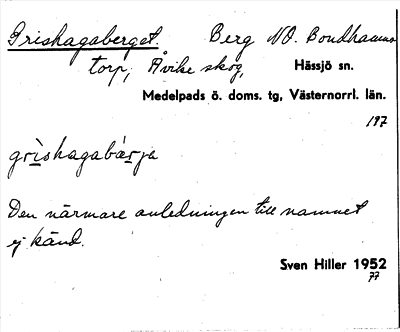 Grishagaberget. Berg NO. Bondhamns
torp, Åvike skog, Hässjö sn.
Medelpads ö. doms. tg, Västernorrl. län.
197
grishagabärja
Den närmare anledningen till namnet
ej känd.
Sven Hiller 1952
77